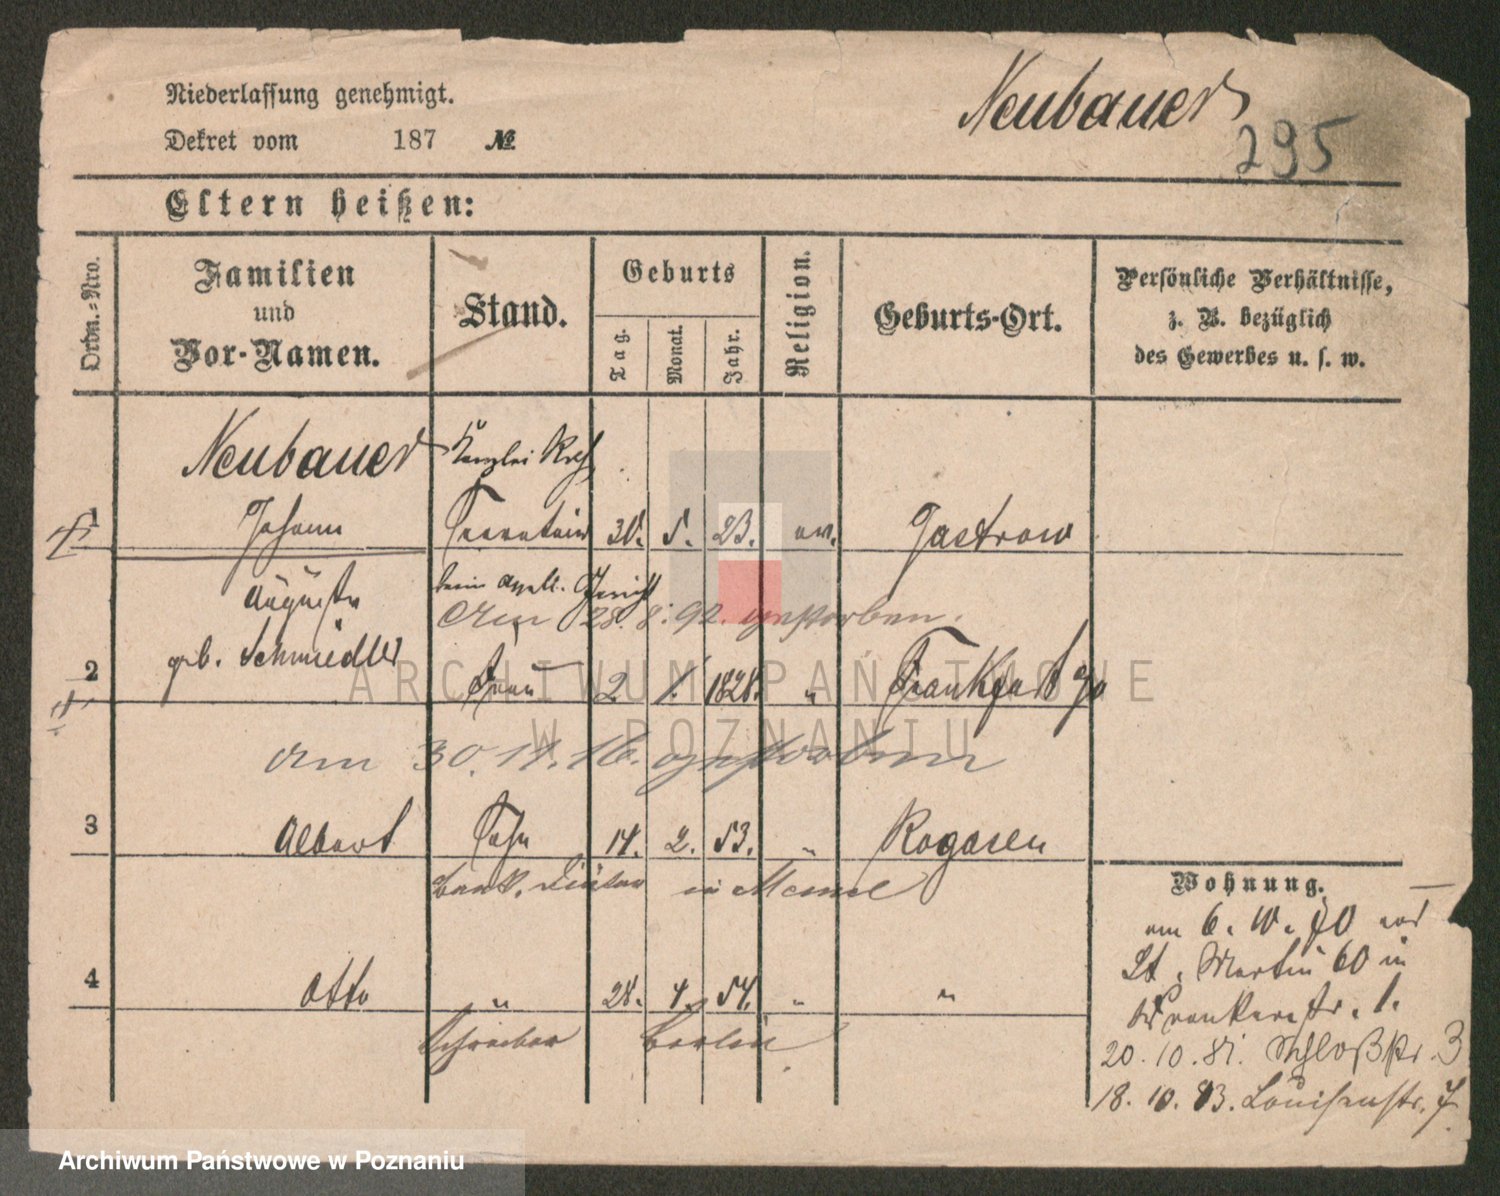 Niederlassung genehmigt.
Neubauer
Dekret vom 187 №
295
Eltern heißen:
Ordn.-Nro.
Familien
und
Vor-Namen.
Stand.
Geburts
Tag.
Monat.
Jahr.
Religion.
Geburts-Ort.
Persönliche Verhältnisse,
z. B. bezüglich
des Gewerbes u. s. w.
Neubauer
Kanzlei
1 Johann 30. 5. 23. ev. Jastrow
Auguste
beim Appell. Gericht
Am 28. 8. 92. gestorben.
geb. Schmiedler
2 Frau 2. 1. 1828. " Frankfurt a/o
am 30. 11. 16. gestorben
3 Albert Sohn 14. 2. 53. " Rogasen
in Memel
Wohnung.
am 6. 10. 70 von
St. Martin 60 in
4 Otto " 28. 4. 54. " "
1.
Schreiber Berlin
20. 10. 81. Schloßstr. 3
18. 10. 83. Louisenstr. 7.
ARCHIWUM PAŃSTWOWE
W POZNANIU
Archiwum Państwowe w Poznaniu